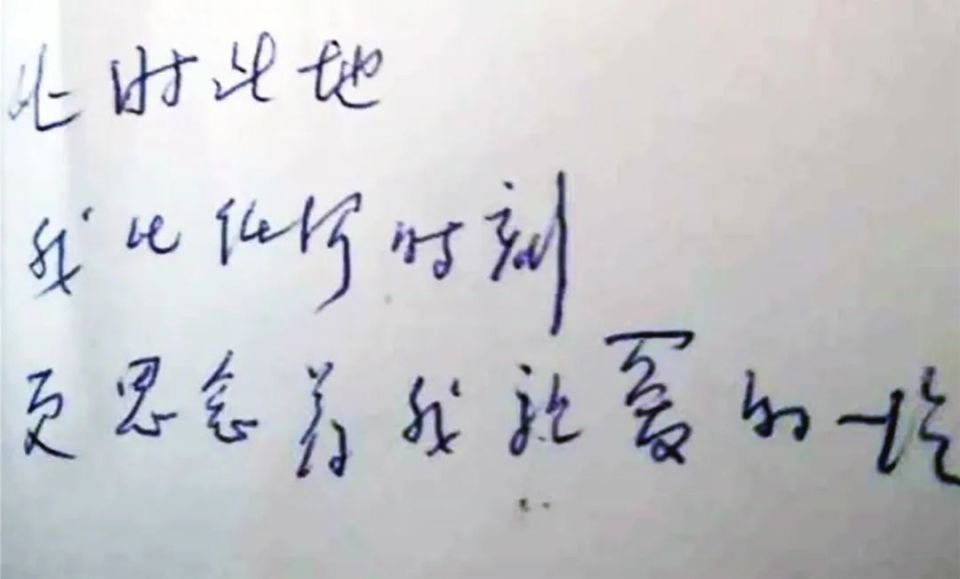 此时此地
我比任何时刻
更思念着我亲爱的